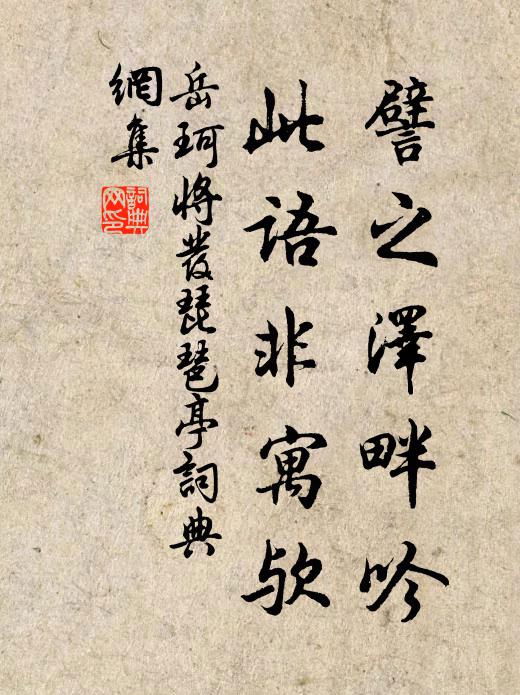 譬之澤畔吟
此語非寓欤
岳珂將發琵琶亭詞典
網集
詞典
网印